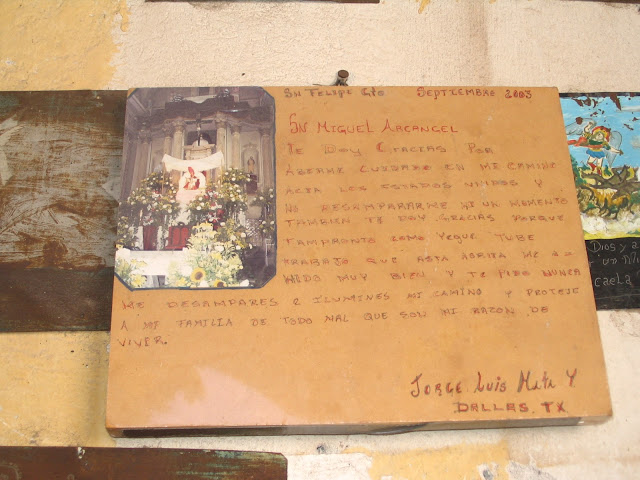 Sn Felipe Gto Septiembre 2003
Sn Miguel Arcangel
Te Doy Gracias Por
Aberme cuidado en mi camino
Acia los Estados Unidos y
no desampararme ni un momento
Tambien te doy gracias porque
tampronto como yegue tube
trabajo que asta aorita me a
hido muy bien y te pido nunca
me desampares e ilumines mi camino y proteje
a mi familia de todo mal que son mi razon de
vivir.
Jorge Luis Mata Y
Dallas, TX
Dios y a
un Mi
caela